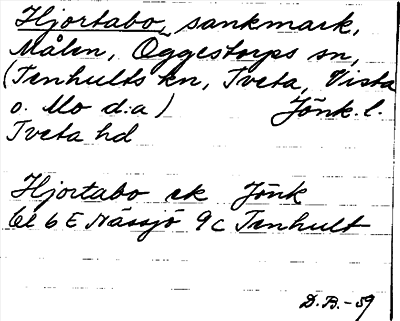 Hjortabo, sankmark,
Målen, Öggestorps sn,
(Tenhults kn, Tveta, Vista
o. Mo d:a) Jönk. l.
Tveta hd
Hjortabo ek Jönk
bl 6 E Nässjö 9c Tenhult
D.B.-59